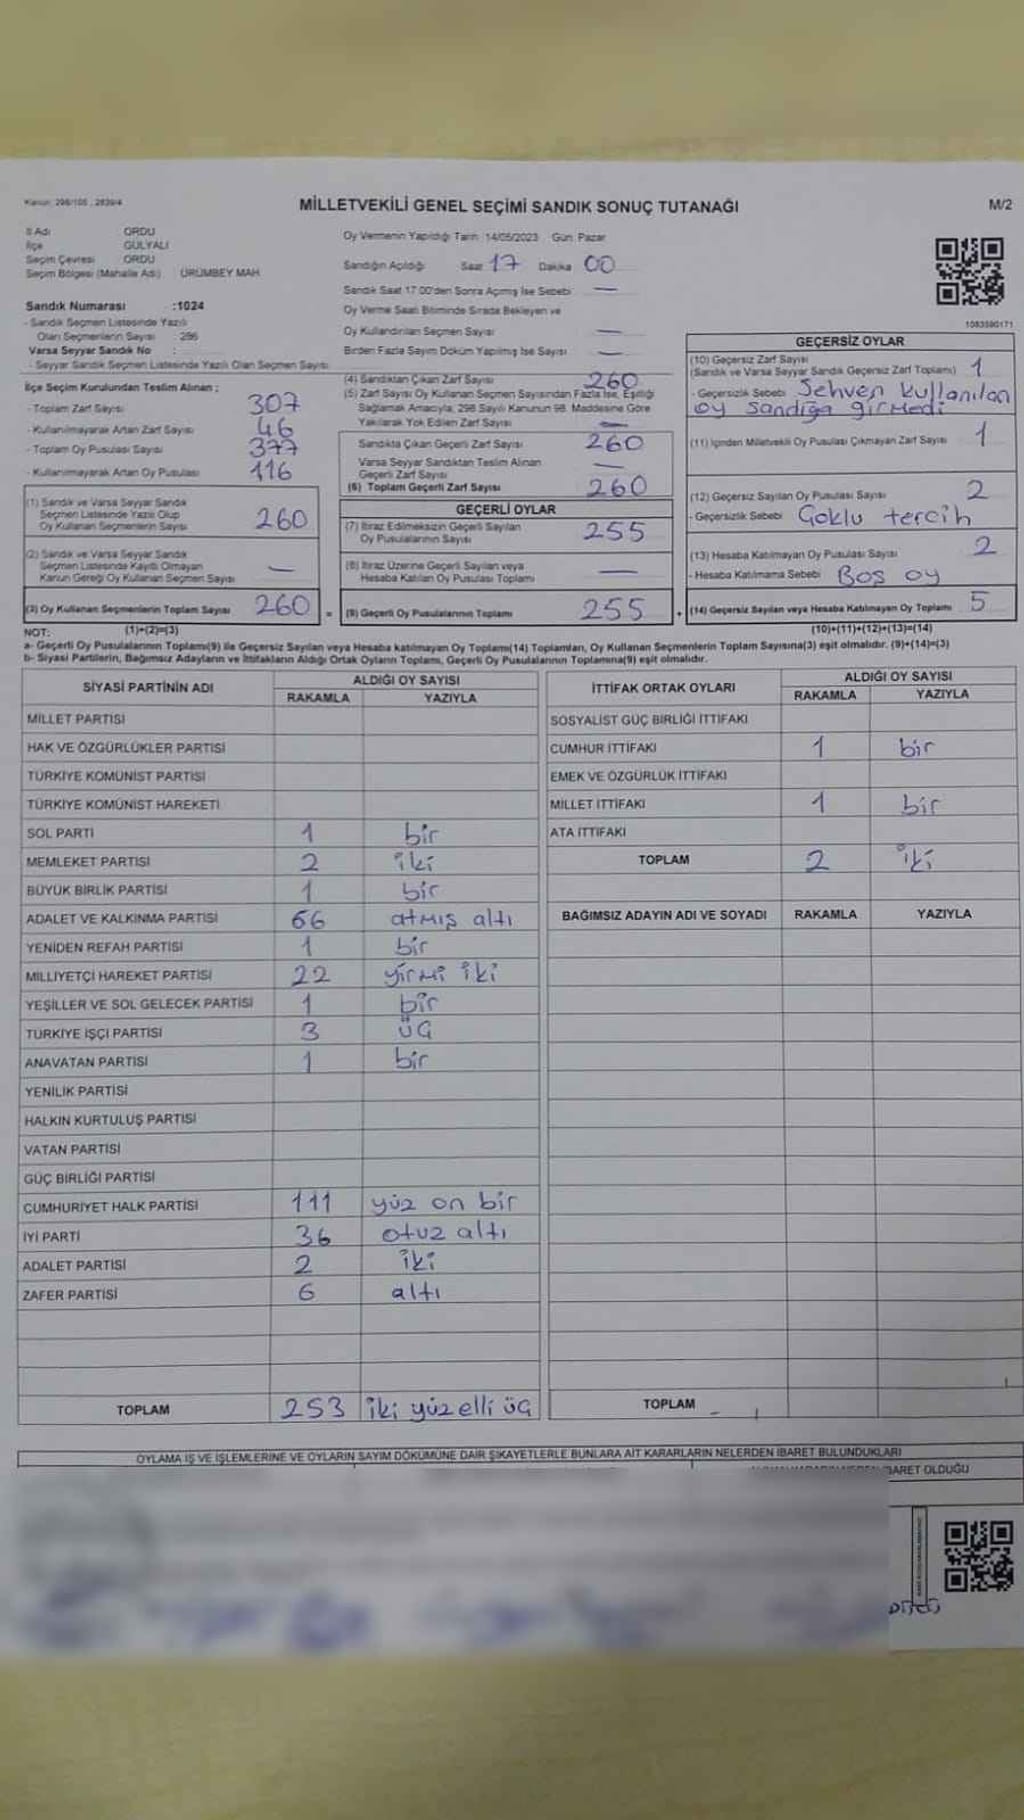 Kanun: 298/105, 2839/4
MİLLETVEKİLİ GENEL SEÇİMİ SANDIK SONUÇ TUTANAĞI
M/2
İl Adı ORDU
İlçe GÜLYALI
Seçim Çevresi ORDU
Seçim Bölgesi (Mahalle Adı) ÜRÜMBEY MAH
Sandık Numarası :1024
- Sandık Seçmen Listesinde Yazılı
Olan Seçmenlerin Sayısı : 296
Varsa Seyyar Sandık No :
- Seyyar Sandık Seçmen Listesinde Yazılı Olan Seçmen Sayısı
Oy Vermenin Yapıldığı Tarih: 14/05/2023 Gün: Pazar
Sandığın Açıldığı Saat 17 Dakika 00
Sandık Saat 17:00'den Sonra Açılmış İse Sebebi —
Oy Verme Saati Bitiminde Sırada Bekleyen ve
Oy Kullandırılan Seçmen Sayısı —
Birden Fazla Sayım Döküm Yapılmış İse Sayısı —
1083590171
İlçe Seçim Kurulundan Teslim Alınan ;
- Toplam Zarf Sayısı 307
- Kullanılmayarak Artan Zarf Sayısı 46
- Toplam Oy Pusulası Sayısı 377
- Kullanılmayarak Artan Oy Pusulası 116
(1) Sandık ve Varsa Seyyar Sandık
Seçmen Listesinde Yazılı Olup
Oy Kullanan Seçmenlerin Sayısı 260
(2) Sandık ve Varsa Seyyar Sandık
Seçmen Listesinde Kayıtlı Olmayan
Kanun Gereği Oy Kullanan Seçmen Sayısı —
(3) Oy Kullanan Seçmenlerin Toplam Sayısı 260 =
(4) Sandıktan Çıkan Zarf Sayısı 260
(5) Zarf Sayısı Oy Kullanan Seçmen Sayısından Fazla İse, Eşitliği
Sağlamak Amacıyla, 298 Sayılı Kanunun 98. Maddesine Göre
Yakılarak Yok Edilen Zarf Sayısı —
Sandıkta Çıkan Geçerli Zarf Sayısı 260
Varsa Seyyar Sandıktan Teslim Alınan
Geçerli Zarf Sayısı —
(6) Toplam Geçerli Zarf Sayısı 260
GEÇERLİ OYLAR
(7) İtiraz Edilmeksizin Geçerli Sayılan
Oy Pusulalarının Sayısı 255
(8) İtiraz Üzerine Geçerli Sayılan veya
Hesaba Katılan Oy Pusulası Toplamı —
(9) Geçerli Oy Pusulalarının Toplamı 255 +
GEÇERSİZ OYLAR
(10) Geçersiz Zarf Sayısı
(Sandık ve Varsa Seyyar Sandık Geçersiz Zarf Toplamı) 1
- Geçersizlik Sebebi Sehven kullanılan
oy sandığa girmedi
(11) İçinden Milletvekili Oy Pusulası Çıkmayan Zarf Sayısı 1
(12) Geçersiz Sayılan Oy Pusulası Sayısı 2
- Geçersizlik Sebebi Çoklu tercih
(13) Hesaba Katılmayan Oy Pusulası Sayısı 2
- Hesaba Katılmama Sebebi Boş oy
(14) Geçersiz Sayılan veya Hesaba Katılmayan Oy Toplamı 5
NOT: (1)+(2)=(3) (10)+(11)+(12)+(13)=(14)
a- Geçerli Oy Pusulalarının Toplamı(9) ile Geçersiz Sayılan veya Hesaba katılmayan Oy Toplamı(14) Toplamları, Oy Kullanan Seçmenlerin Toplam Sayısına(3) eşit olmalıdır. (9)+(14)=(3)
b- Siyasi Partilerin, Bağımsız Adayların ve İttifakların Aldığı Ortak Oyların Toplamı, Geçerli Oy Pusulalarının Toplamına(9) eşit olmalıdır.
SİYASİ PARTİNİN ADI ALDIĞI OY SAYISI
RAKAMLA YAZIYLA
MİLLET PARTİSİ
HAK VE ÖZGÜRLÜKLER PARTİSİ
TÜRKİYE KOMÜNİST PARTİSİ
TÜRKİYE KOMÜNİST HAREKETİ
SOL PARTİ 1 bir
MEMLEKET PARTİSİ 2 iki
BÜYÜK BİRLİK PARTİSİ 1 bir
ADALET VE KALKINMA PARTİSİ 66 atmış altı
YENİDEN REFAH PARTİSİ 1 bir
MİLLİYETÇİ HAREKET PARTİSİ 22 yirmi iki
YEŞİLLER VE SOL GELECEK PARTİSİ 1 bir
TÜRKİYE İŞÇİ PARTİSİ 3 üç
ANAVATAN PARTİSİ 1 bir
YENİLİK PARTİSİ
HALKIN KURTULUŞ PARTİSİ
VATAN PARTİSİ
GÜÇ BİRLİĞİ PARTİSİ
CUMHURİYET HALK PARTİSİ 111 yüz on bir
İYİ PARTİ 36 otuz altı
ADALET PARTİSİ 2 iki
ZAFER PARTİSİ 6 altı
TOPLAM 253 iki yüz elli üç
İTTİFAK ORTAK OYLARI ALDIĞI OY SAYISI
RAKAMLA YAZIYLA
SOSYALİST GÜÇ BİRLİĞİ İTTİFAKI
CUMHUR İTTİFAKI 1 bir
EMEK VE ÖZGÜRLÜK İTTİFAKI
MİLLET İTTİFAKI 1 bir
ATA İTTİFAKI
TOPLAM 2 iki
BAĞIMSIZ ADAYIN ADI VE SOYADI RAKAMLA YAZIYLA
TOPLAM
OYLAMA İŞ VE İŞLEMLERİNE VE OYLARIN SAYIM DÖKÜMÜNE DAİR ŞİKAYETLERLE BUNLARA AİT KARARLARIN NELERDEN İBARET BULUNDUKLARI
İBARET OLDUĞU